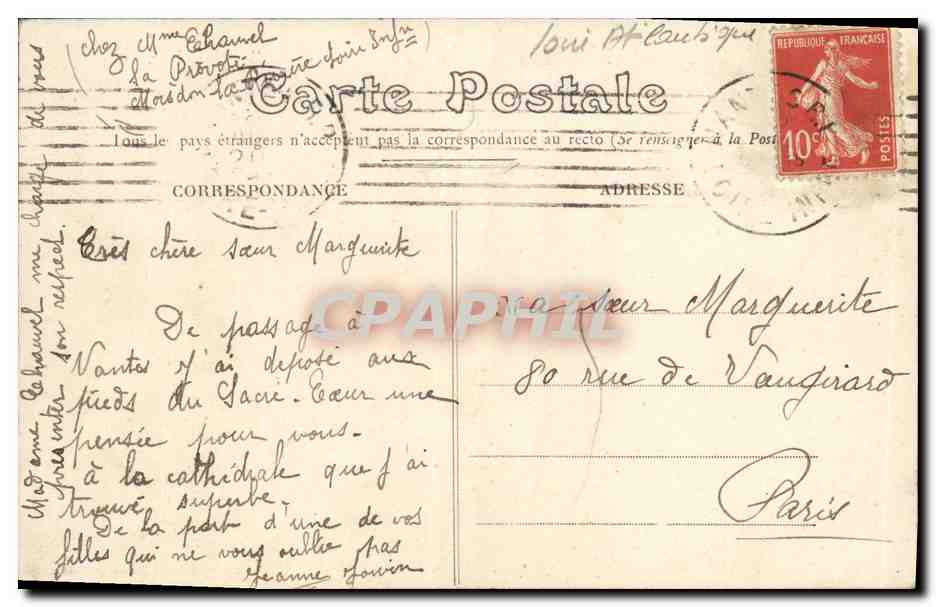 (chez Mme Chauvel
La Prévoté
Moisdon la Rivière Loire Infre)
Loire Atlantique
Carte Postale
Tous les pays étrangers n'acceptent pas la correspondance au recto (Se renseigner à la Poste
CORRESPONDANCE
ADRESSE
REPUBLIQUE FRANÇAISE
10c
POSTES
Très chère sœur Marguerite
De passage à
Nantes j'ai déposé aux
pieds du Sacré-Cœur une
pensée pour vous-
à la cathédrale que j'ai
trouvé superbe.
De la part d'une de vos
filles qui ne vous oublie pas
Jeanne
Madame Chauvel me charge de vous
présenter son respect.
Ma sœur Marguerite
80 rue de Vaugirard
Paris
CPAPHIL